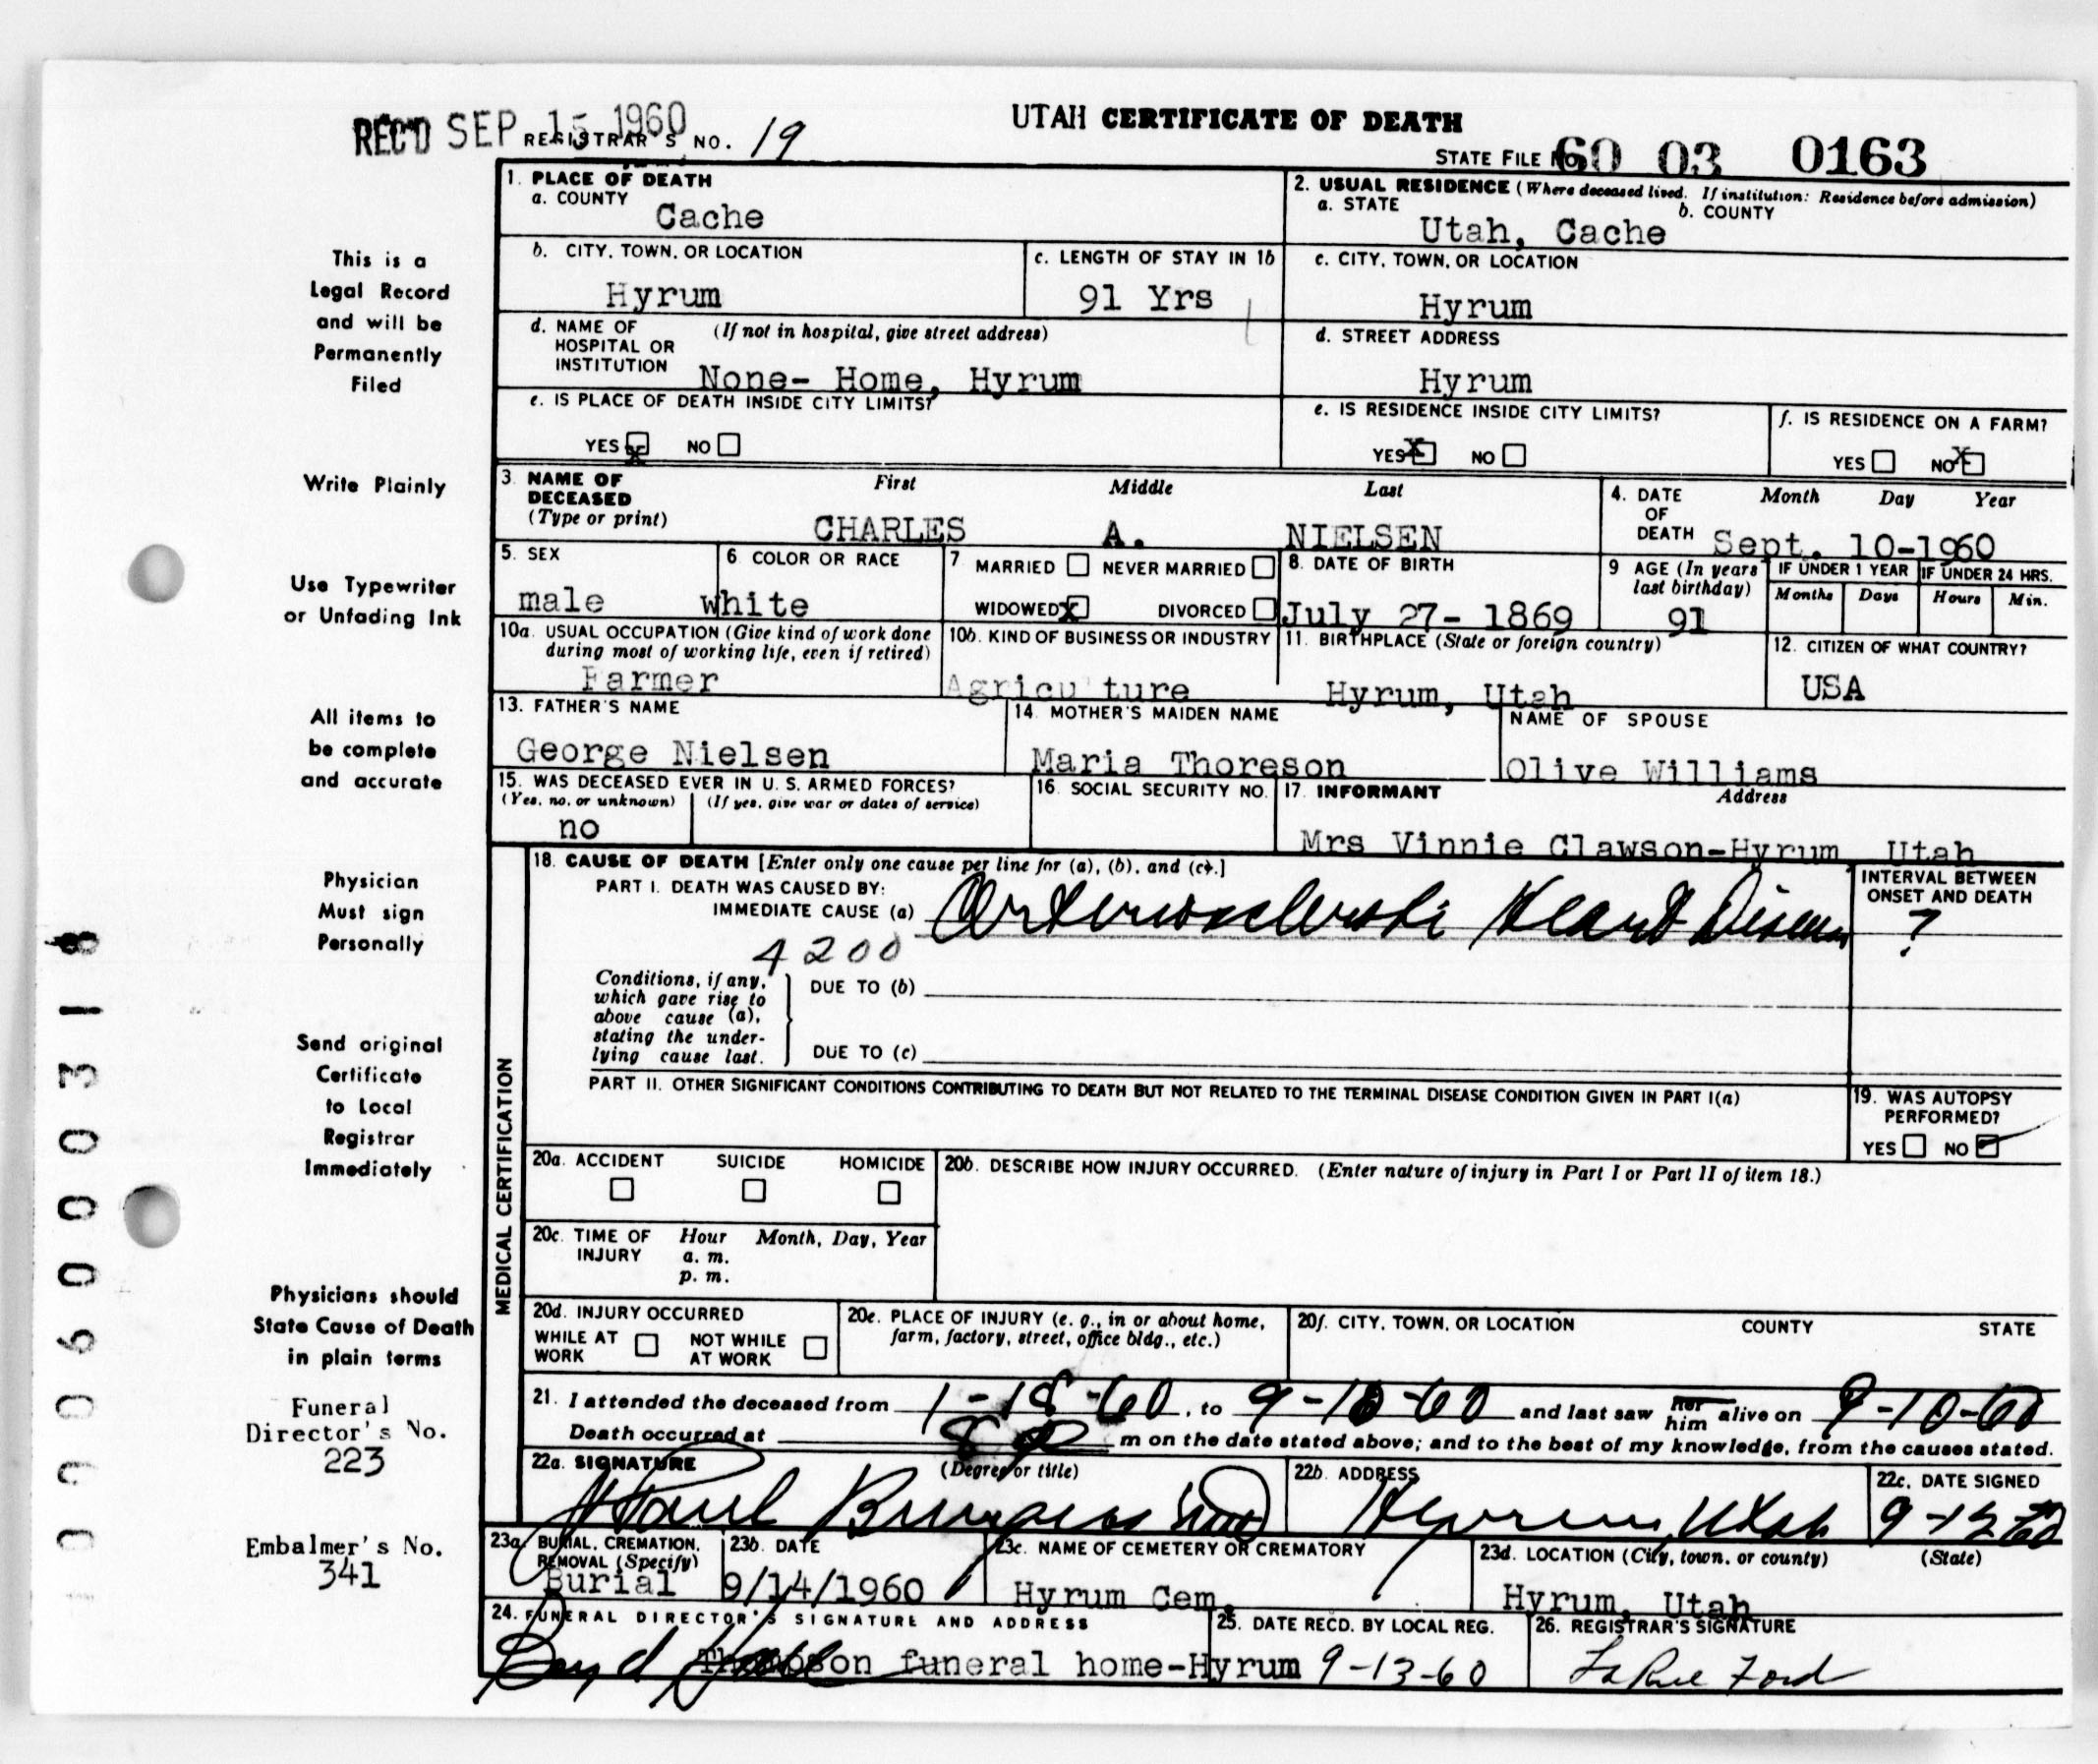 UTAH CERTIFICATE OF DEATH
REC'D SEP 15 1960 REGISTRAR'S NO. 19
STATE FILE NO. 60 03 0163
1. PLACE OF DEATH
a. COUNTY
Cache
2. USUAL RESIDENCE (Where deceased lived. If institution: Residence before admission)
a. STATE b. COUNTY
Utah, Cache
b. CITY, TOWN, OR LOCATION
Hyrum
c. LENGTH OF STAY IN 1b
91 Yrs
c. CITY, TOWN, OR LOCATION
Hyrum
d. NAME OF HOSPITAL OR INSTITUTION (If not in hospital, give street address)
None- Home, Hyrum
d. STREET ADDRESS
Hyrum
e. IS PLACE OF DEATH INSIDE CITY LIMITS?
YES X NO
e. IS RESIDENCE INSIDE CITY LIMITS?
YES X NO
f. IS RESIDENCE ON A FARM?
YES NO X
3. NAME OF DECEASED (Type or print)
First Middle Last
CHARLES A. NIELSEN
4. DATE OF DEATH Month Day Year
Sept. 10-1960
5. SEX
male
6 COLOR OR RACE
white
7 MARRIED NEVER MARRIED
WIDOWED X DIVORCED
8. DATE OF BIRTH
July 27- 1869
9 AGE (In years last birthday)
91
IF UNDER 1 YEAR
Months Days
IF UNDER 24 HRS.
Hours Min.
10a. USUAL OCCUPATION (Give kind of work done during most of working life, even if retired)
Farmer
10b. KIND OF BUSINESS OR INDUSTRY
Agricu ture
11. BIRTHPLACE (State or foreign country)
Hyrum, Utah
12. CITIZEN OF WHAT COUNTRY?
USA
13. FATHER'S NAME
George Nielsen
14. MOTHER'S MAIDEN NAME
Maria Thoreson
NAME OF SPOUSE
Olive Williams
15. WAS DECEASED EVER IN U. S. ARMED FORCES?
(Yes, no, or unknown) (If yes, give war or dates of service)
no
16. SOCIAL SECURITY NO.
17. INFORMANT Address
Mrs Vinnie Clawson-Hyrum Utah
MEDICAL CERTIFICATION
18. CAUSE OF DEATH [Enter only one cause per line for (a), (b), and (c).]
PART I. DEATH WAS CAUSED BY:
IMMEDIATE CAUSE (a) Heart Disease
4200
INTERVAL BETWEEN ONSET AND DEATH
?
Conditions, if any, which gave rise to above cause (a), stating the underlying cause last.
DUE TO (b)
DUE TO (c)
PART II. OTHER SIGNIFICANT CONDITIONS CONTRIBUTING TO DEATH BUT NOT RELATED TO THE TERMINAL DISEASE CONDITION GIVEN IN PART I(a)
19. WAS AUTOPSY PERFORMED?
YES NO
20a. ACCIDENT SUICIDE HOMICIDE
20b. DESCRIBE HOW INJURY OCCURRED. (Enter nature of injury in Part I or Part II of item 18.)
20c. TIME OF INJURY Hour Month, Day, Year
a. m.
p. m.
20d. INJURY OCCURRED
WHILE AT WORK NOT WHILE AT WORK
20e. PLACE OF INJURY (e. g., in or about home, farm, factory, street, office bldg., etc.)
20f. CITY, TOWN, OR LOCATION COUNTY STATE
21. I attended the deceased from 1-18-60, to 9-10-60 and last saw her him alive on 9-10-60
Death occurred at 8 m on the date stated above; and to the best of my knowledge, from the causes stated.
22a. SIGNATURE (Degree or title)
Paul Burgess MD
22b. ADDRESS
Hyrum, Utah
22c. DATE SIGNED
23a. BURIAL, CREMATION, REMOVAL (Specify)
Burial
23b. DATE
9/14/1960
23c. NAME OF CEMETERY OR CREMATORY
Hyrum Cem.
23d. LOCATION (City, town, or county) (State)
Hyrum, Utah
24. FUNERAL DIRECTOR'S SIGNATURE AND ADDRESS
Boyd
Thompson funeral home-Hyrum
25. DATE RECD. BY LOCAL REG.
9-13-60
26. REGISTRAR'S SIGNATURE
LaRue Ford
This is a
Legal Record
and will be
Permanently
Filed
Write Plainly
Use Typewriter
or Unfading Ink
All items to
be complete
and accurate
Physician
Must sign
Personally
Send original
Certificate
to Local
Registrar
Immediately
Physicians should
State Cause of Death
in plain terms
Funeral
Director's No.
223
Embalmer's No.
341